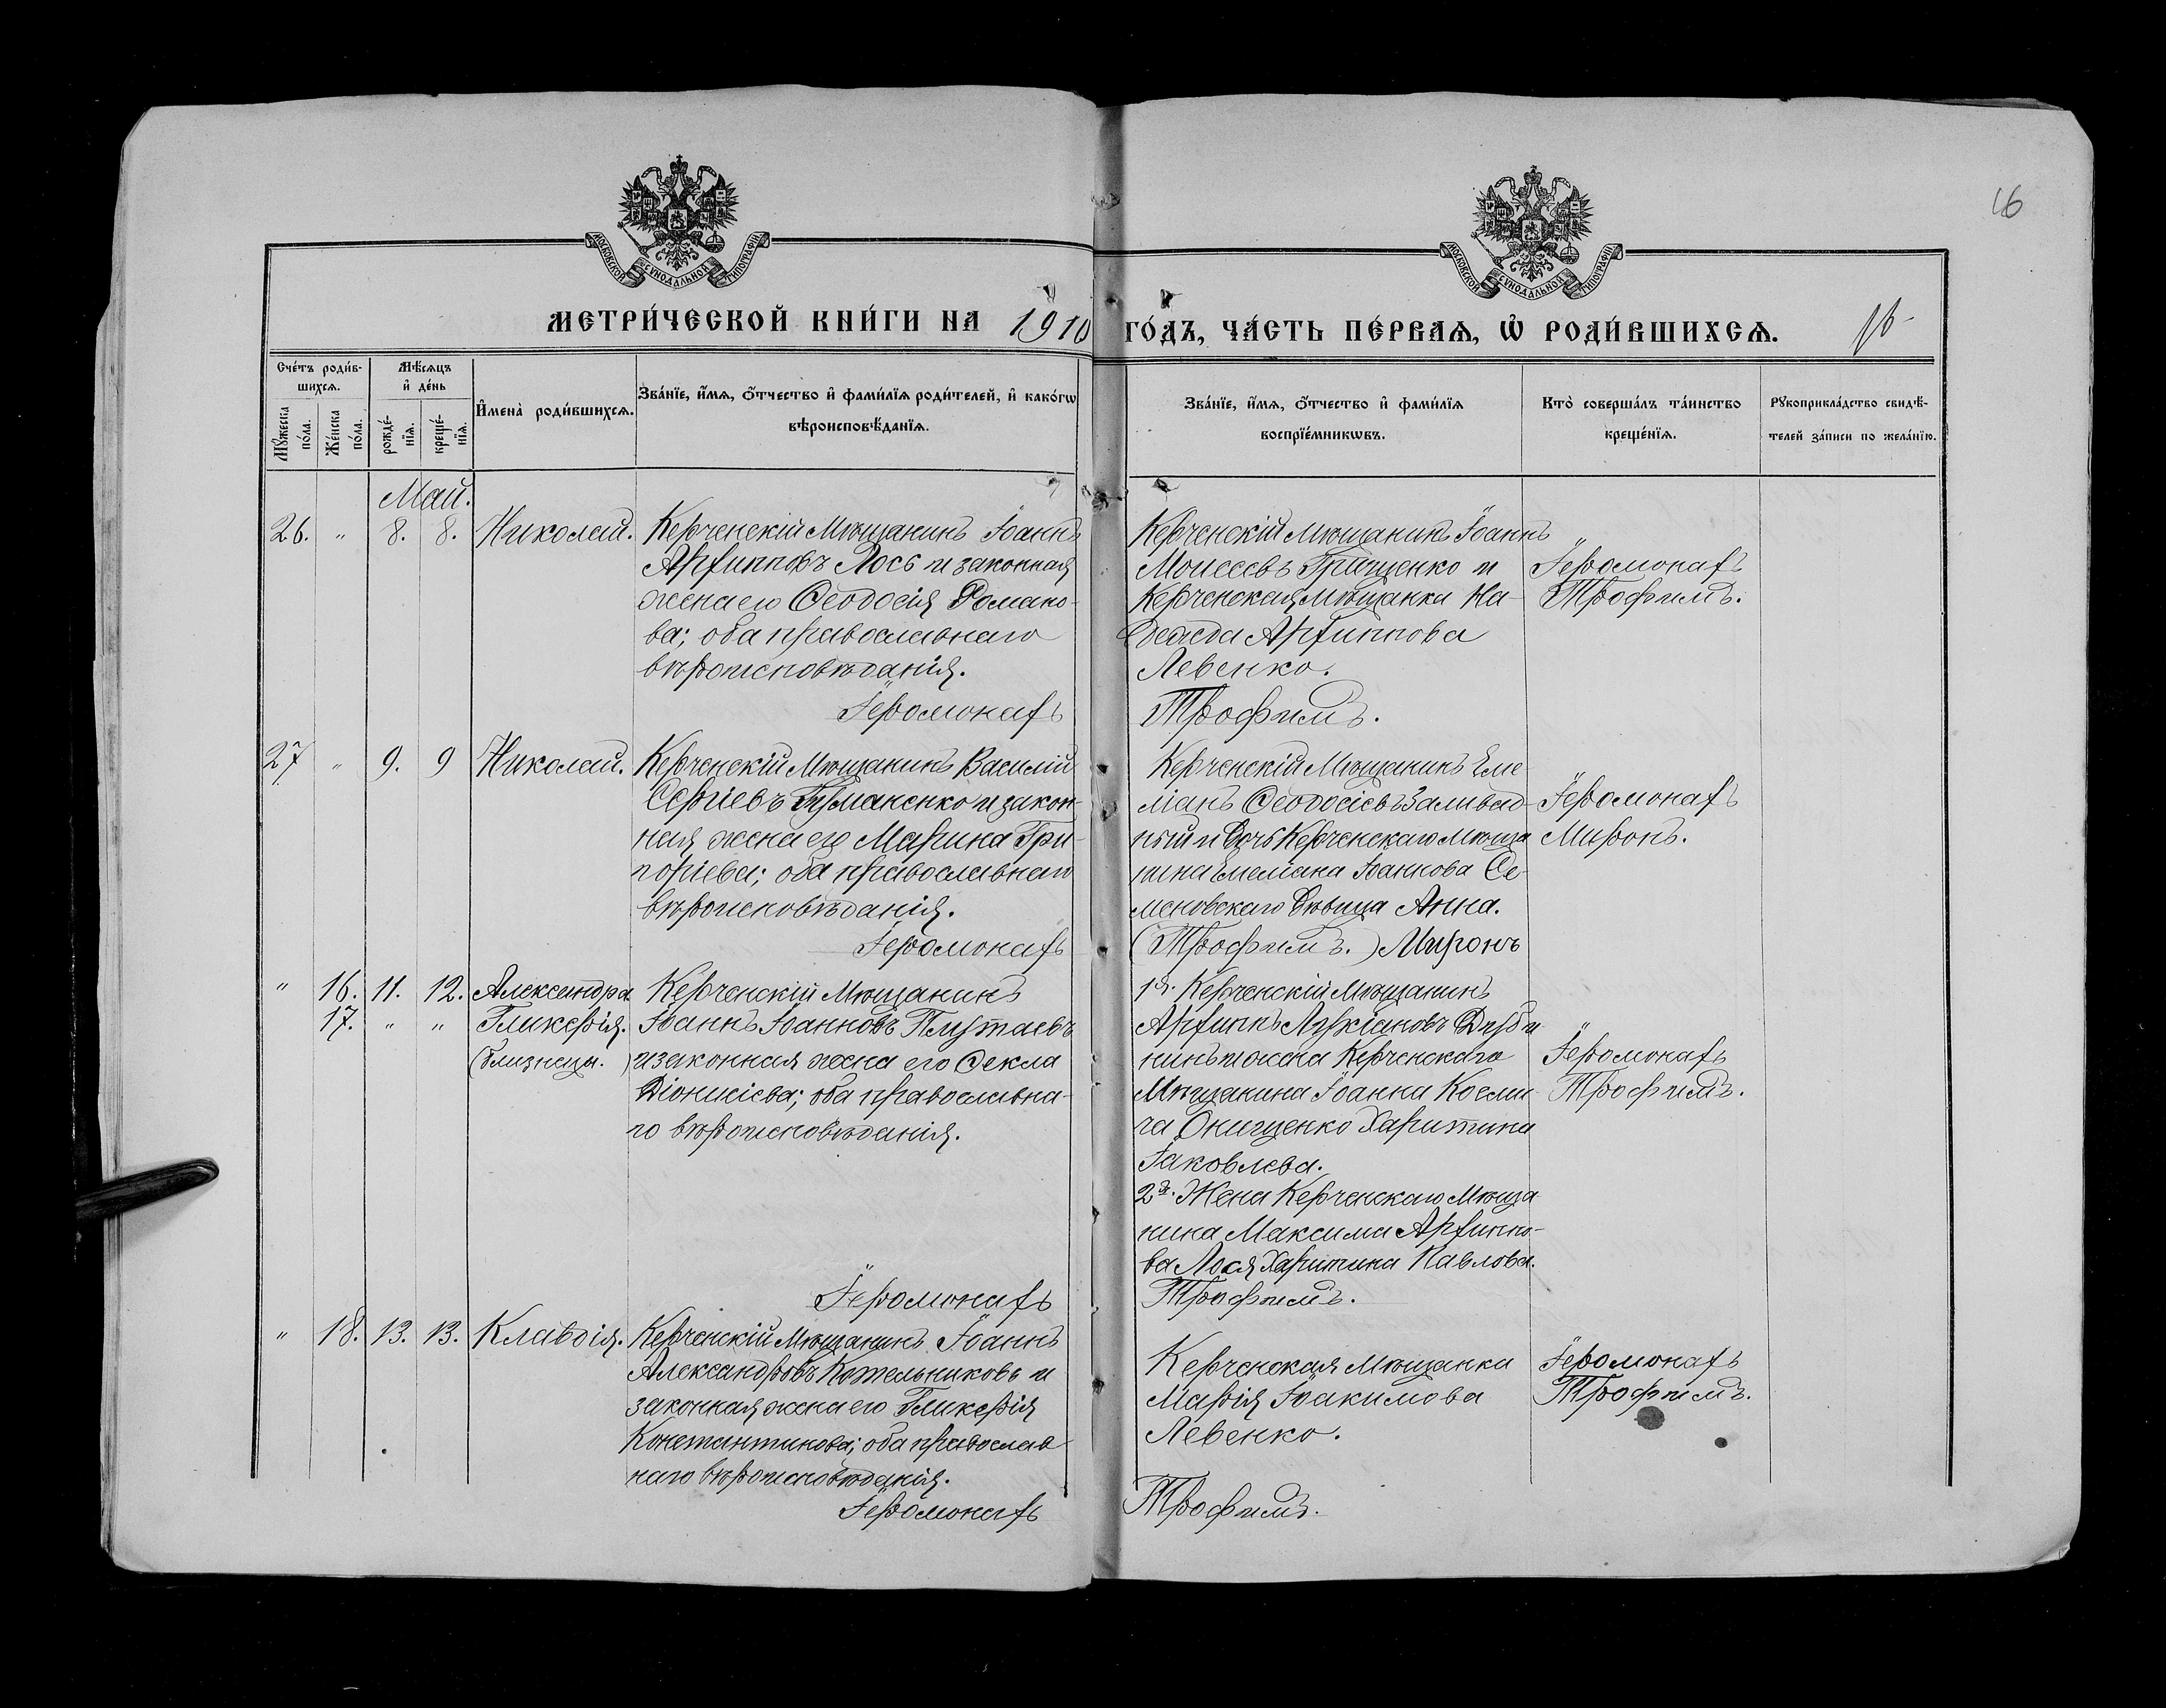 16
МОСКОВСКОЙ СѴНОДАЛЬНОЙ ТИПОГРАФІИ
МОСКОВСКОЙ СѴНОДАЛЬНОЙ ТИПОГРАФІИ
МЕТРИ́ЧЕСКОЙ КНИ́ГИ НА 1910 ГО́ДЪ, ЧА́СТЬ ПЕ́РВАѦ, Ѡ҆ РОДИ́ВШИХСѦ. 16
Сче́тъ роди́в-
шихсѧ.
Мꙋ́жеска по́ла.
Же́нска по́ла.
Мѣ́сѧцъ
и҆ де́нь
рожде́-
нїѧ.
креще́-
нїѧ.
И҆мена̀ роди́вшихсѧ.
Зва́нїе, и҆́мѧ, ѻ҆́тчество и҆ фами́лїѧ роди́телей, и҆ како́гѡ
вѣроисповѣ́данїѧ.
Зва́нїе, и҆́мѧ, ѻ҆́тчество и҆ фами́лїѧ
воспрїе́мникѡвъ.
Кто̀ соверша́лъ та́инство
креще́нїѧ.
Рꙋкоприкла́дство свидѣ́-
телей за́писи по жела́нїю.
Май.
26. " 8. 8. Николай.
Керченскій Мѣщанинъ Іоаннъ
Архипповъ Лось и законная
жена его Ѳеодосія Романо-
ва; оба православнаго
вѣроисповѣданія.
Іеромонахъ
Керченскій Мѣщанинъ Іоаннъ
Моисеевъ Грищенко и
Керченская Мѣщанка На-
дежда Архиппова
Левенко.
Трофимъ.
Іеромонахъ
Трофимъ.
27. " 9. 9 Николай.
Керченскій Мѣщанинъ Василій
Сергіевъ Гуманенко и закон-
ная жена его Марина Гри-
горіева; оба православнаго
вѣроисповѣданія.
Іеромонахъ
Керченскій Мѣщанинъ Еме-
ліанъ Ѳеодосіевъ Заливад-
ный и дочь Керченскаго Мѣща
нина Емеліана Іоаннова Се-
меновскаго дѣвица Анна.
(Трофимъ.) Миронъ
Іеромонахъ
Миронъ.
" 16. 11. 12. Александра
17. " " Гликерія.
(близнецы.)
Керченскій Мѣщанинъ
Іоаннъ Іоанновъ Плутаевъ
и законная жена его Ѳекла
Діонисіева; оба православна-
го вѣроисповѣданія.
Іеромонахъ
1я. Керченскій Мѣщанинъ
Архиппъ Лукіановъ Дуби
нинъ и жена Керченскаго
Мѣщанина Іоанна Косми
ча Онищенко Харитина
Іаковлева.
2я. Жена Керченскаго Мѣща
нина Максима Архиппо-
ва Лося Харитина Павлова.
Трофимъ.
Іеромонахъ
Трофимъ.
" 18. 13. 13. Клавдія.
Керченскій Мѣщанинъ Іоаннъ
Александровъ Котельниковъ и
законная жена его Гликерія
Константинова; оба православ
наго вѣроисповѣданія.
Іеромонахъ
Керченская Мѣщанка
Марія Іоакимова
Левенко.
Трофимъ.
Іеромонахъ
Трофимъ.